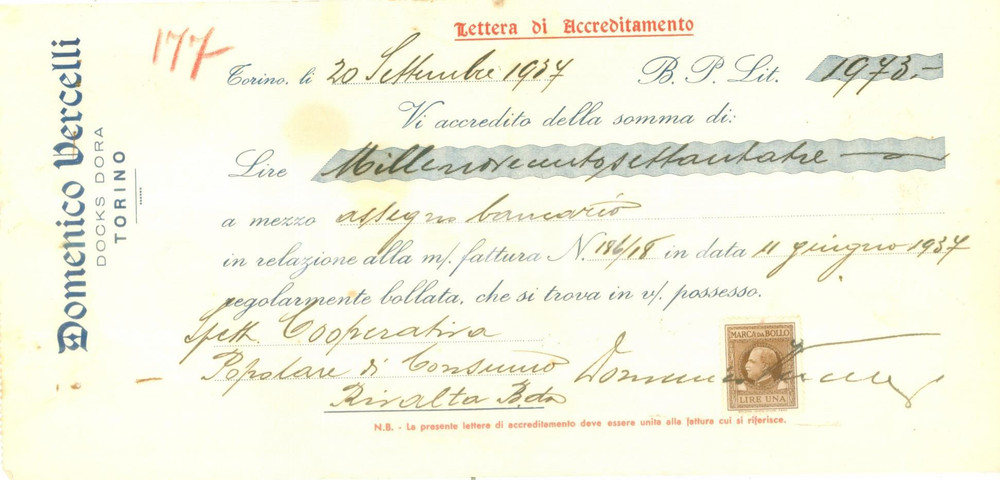 Domenico Vercelli
DOCKS DORA
TORINO
177
Lettera di Accreditamento
Torino, li 20 Settembre 1937 B. P. Lit. 1973.-
Vi accredito della somma di:
Lire Millenovecentosettantatre
a mezzo assegno bancario
in relazione alla m/. fattura N. 186/18 in data 11 giugno 1937
regolarmente bollata, che si trova in v/. possesso.
Spett. Cooperativa
Popolare di Consumo
Rivalta Bda
Domenico Vercelli
MARCA DA BOLLO
LIRE UNA
N.B. - La presente lettera di accreditamento deve essere unita alla fattura cui si riferisce.